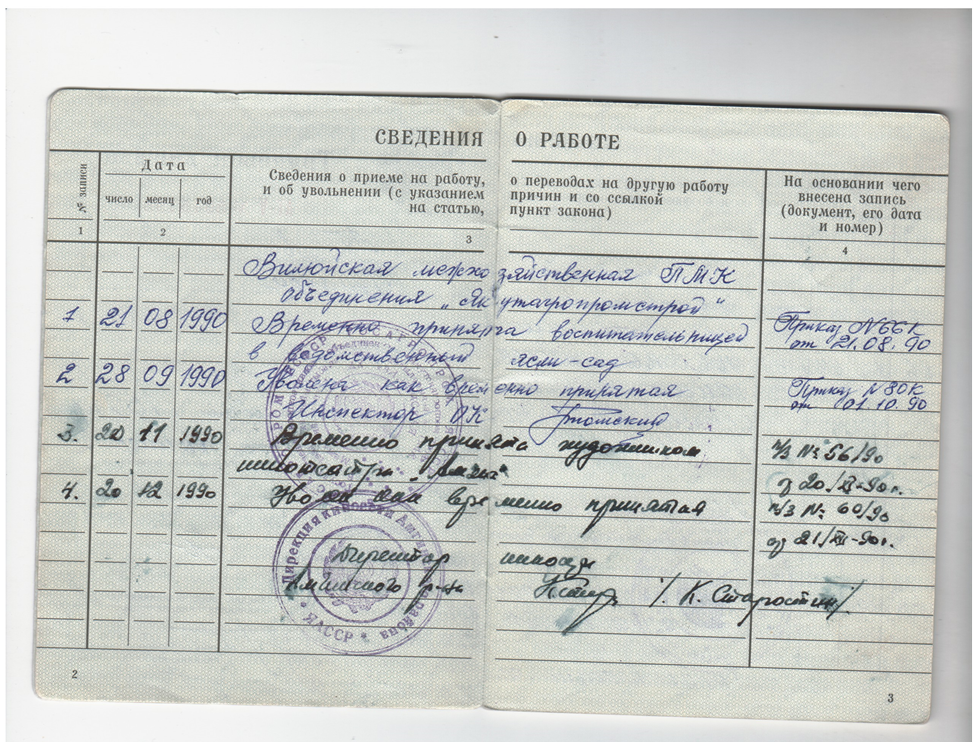 СВЕДЕНИЯ О РАБОТЕ
№ записи
Дата
число месяц год
Сведения о приеме на работу, о переводах на другую работу
и об увольнении (с указанием причин и со ссылкой
на статью, пункт закона)
На основании чего
внесена запись
(документ, его дата
и номер)
1 2 3 4
Вилюйская межхозяйственная ПМК
объединения „Якутагропромстрой"
1 21 08 1990 Временно принята воспитательницей Приказ №66к
в ведомственный ясли-сад от 21.08.90
2 28 09 1990 Уволена как временно принятая Приказ №80к
Инспектор ОК от 01.10.90
3. 20 11 1990 Временно принята художником п/з №56/90
кинотеатра от 20/XI-90г.
4. 20 12 1990 как временно принятая п/з № 60/90
от 21/XII-90г.
Директор
Амгинского р-на /. К. Старостин/.
Дирекция киносети Амгинского района
* ЯАССР *
2
3